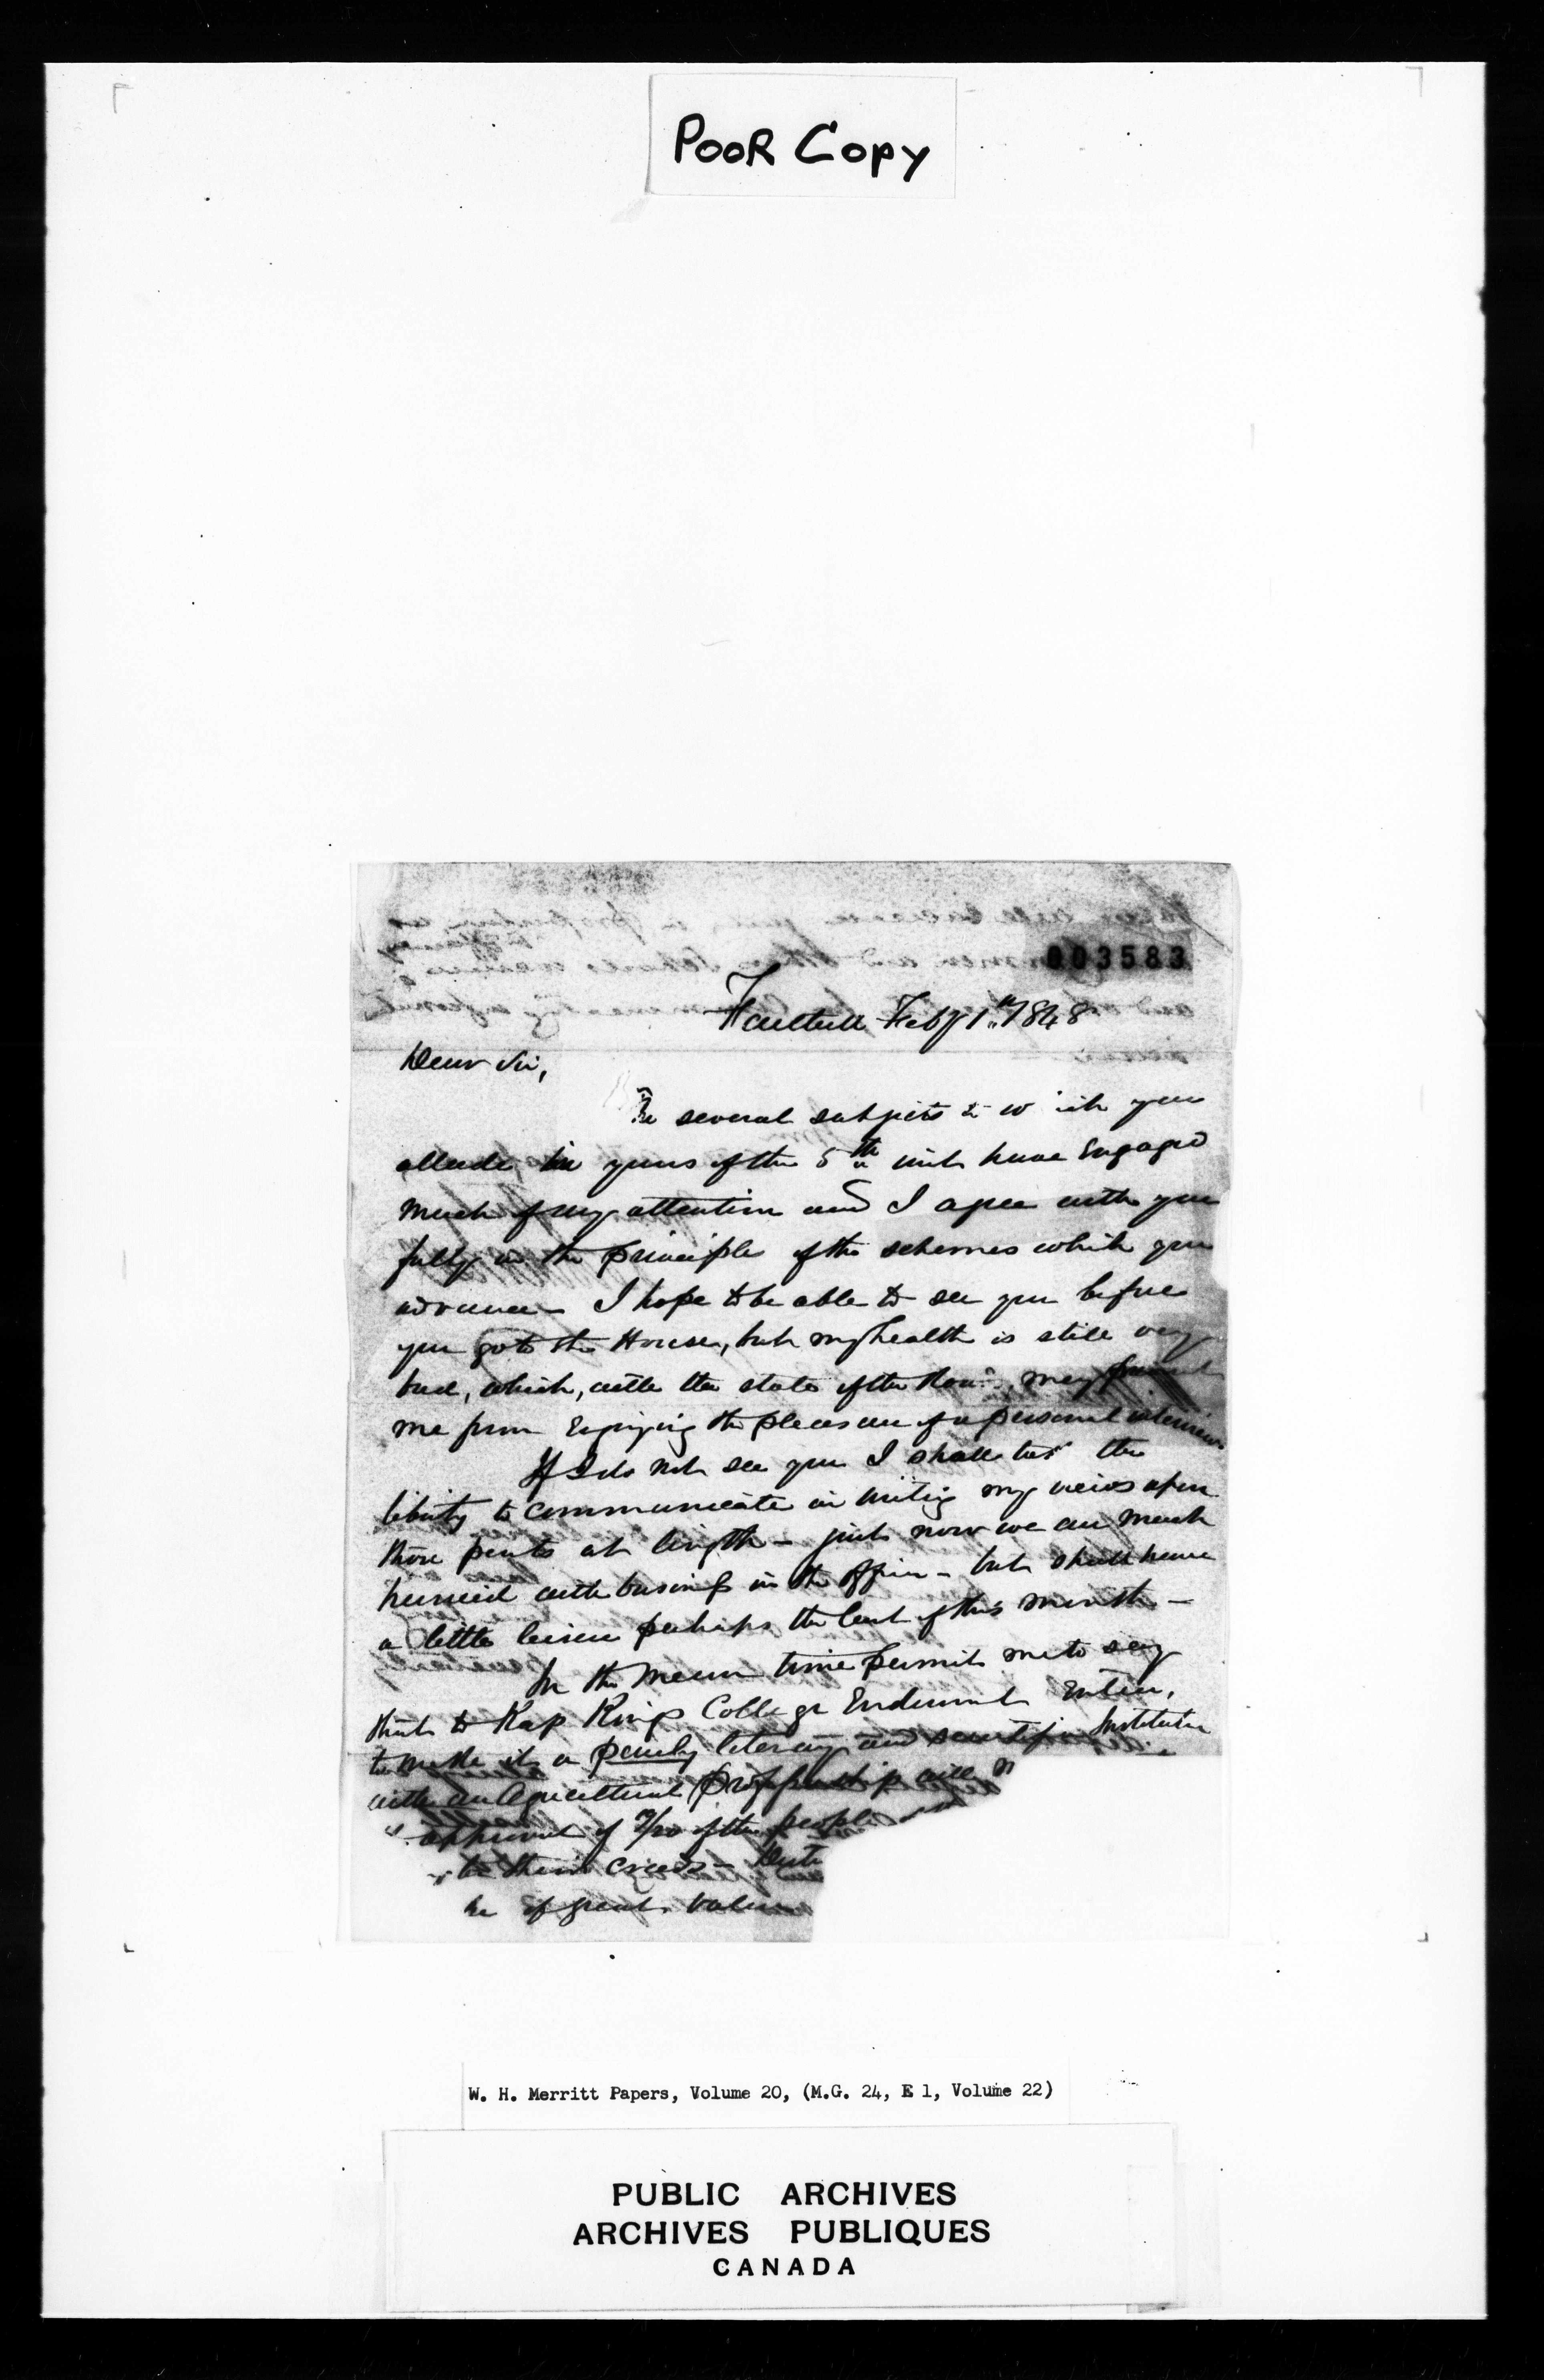 POOR COPY
003583
Feby 1st 1848
Dear Sir,
The several subjects to w ich you
allude in yours of the 5th inst have engaged
much of my attention and I agree with you
fully in the principle of the schemes which you
advance - I hope to be able to see you before
you go to the House, but my health is still very
bad, which, with the state of the Roads, may prevent
me from enjoying the pleasure of a personal interview
If I do not see you I shall take the
liberty to communicate in writing my views upon
those points at length - just now we are much
hurried with business in the office - but shall have
a little leisure perhaps the last of this month -
In the mean time permit me to say
that to Kings College Endowment Entire,
to make it a purely literary and scientific Institution
with an Agricultural Professorship will
approval of of the people
to their creeds -
be of great value
W. H. Merritt Papers, Volume 20, (M.G. 24, E 1, Volume 22)
PUBLIC ARCHIVES
ARCHIVES PUBLIQUES
CANADA